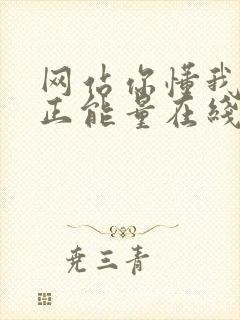 网站你懂我
正能量在线
尧三青